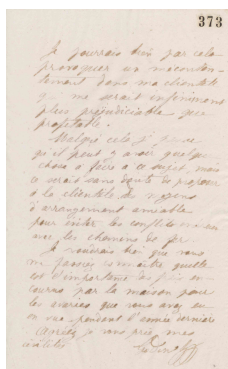 373
Je pourrais bien par cela
provoquer un mécontentement
dans ma clientèle
qui me serait infiniment
plus préjudiciable que
profitable.
Malgré cela je pense
qu'il peut y avoir quelque
chose à faire à ce sujet, mais
ce serait sans doute de proposer
à la clientèle des moyens
d'arrangement amiable
pour éviter les conflits
avec les chemins de fer.
Je voudrais bien que vous
me fassiez connaître quelle
est l'importance des
par la maison pour
les avaries que vous avez eu
en vue, pendant l'année dernière
Agréez, je vous prie, mes
civilités